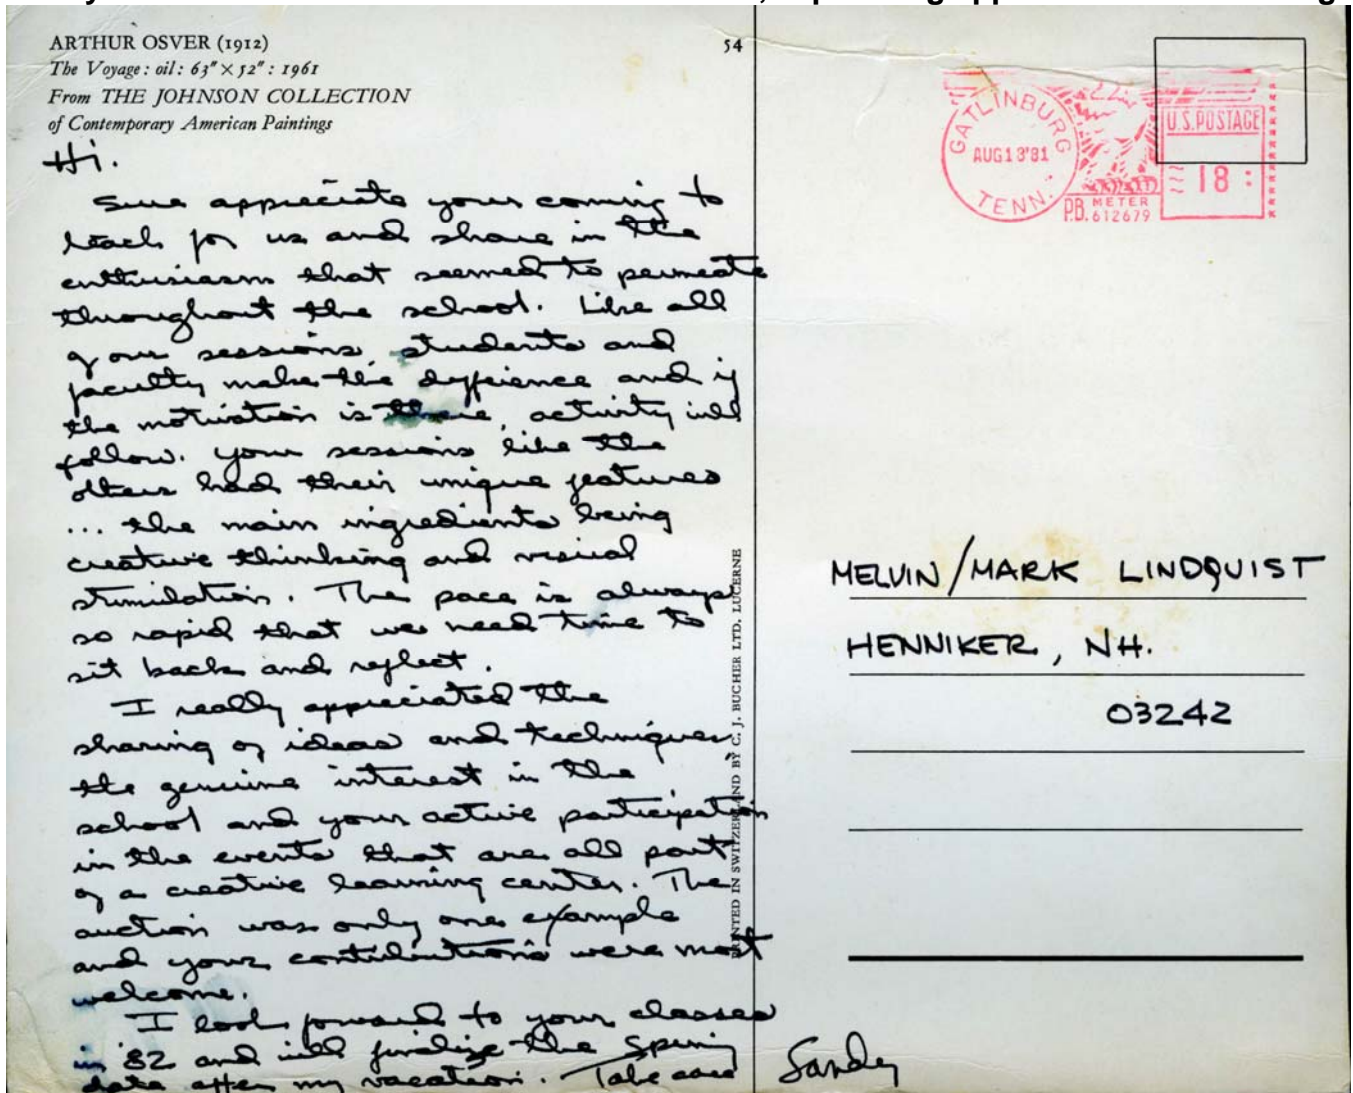 ARTHUR OSVER (1912)
The Voyage : oil : 63" × 52" : 1961
From THE JOHNSON COLLECTION
of Contemporary American Paintings
54
GATLINBURG
AUG 13 '81
TENN.
U.S. POSTAGE
18
P.B. METER
612679
Hi.
Sure appreciate your coming to
teach for us and share in the
enthusiasm that seemed to permeate
throughout the school. Like all
of our sessions, students and
faculty make the difference and if
the motivation is there, activity will
follow. Your sessions like the
others had their unique features
... the main ingredients being
creative thinking and visual
stimulation. The pace is always
so rapid that we need time to
sit back and reflect.
I really appreciated the
sharing of ideas and techniques,
the genuine interest in the
school and your active participation
in the events that are all part
of a creative learning center. The
auction was only one example
and your contributions were most
welcome.
I look forward to your classes
in '82 and will finalize the Spring
date after my vacation. Take care Sandy
PRINTED IN SWITZERLAND BY C. J. BUCHER LTD. LUCERNE
MELVIN/MARK LINDQUIST
HENNIKER, NH.
03242